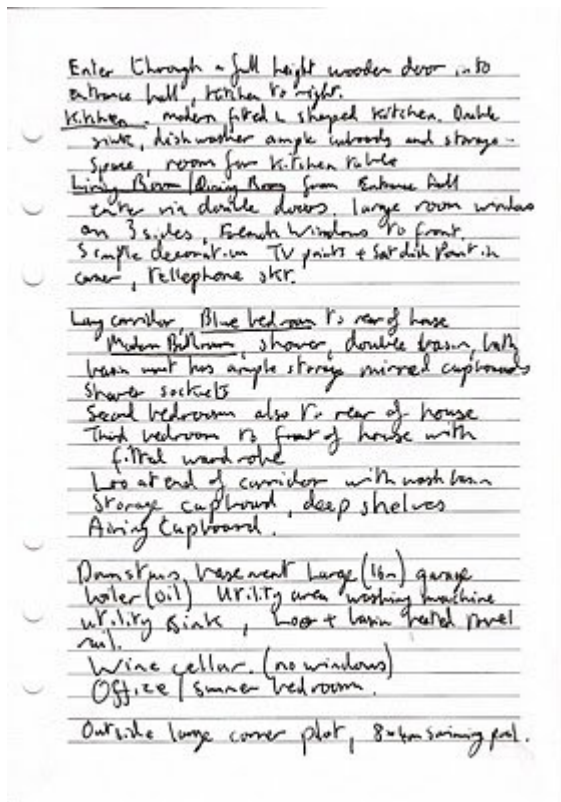 Enter through a full height wooden door into
entrance hall, kitchen to right.
Kitchen. modern fitted L shaped kitchen. Double
sink, dishwasher ample cubords and storage -
space, room for kitchen table
Living Room/Dining Room from Entrance Hall
enter via double doors, large room windows
on 3 sides, French Windows to front.
Simple decoration TV points + Sat dish Point in
corner, Tellephone skt.
Long corridor, Blue bedroom to rear of house
Modern Bathroom, shower, double basin, bath,
basin unit has ample storage mirred cupboards
Shaver sockets
Second bedroom also to rear of house
Third bedroom to front of house with
fitted wardrobe
Loo at end of corridor with wash basin
Storage cupboard, deep shelves
Airing Cupboard.
Downstairs, basement Large (16m) garage
boiler (oil) Utility area washing machine
utility sink, Loo + basin heated towel
rail.
Wine cellar. (no windows)
Office / summer bedroom.
Outside large corner plot, 8x4m swimming pool.